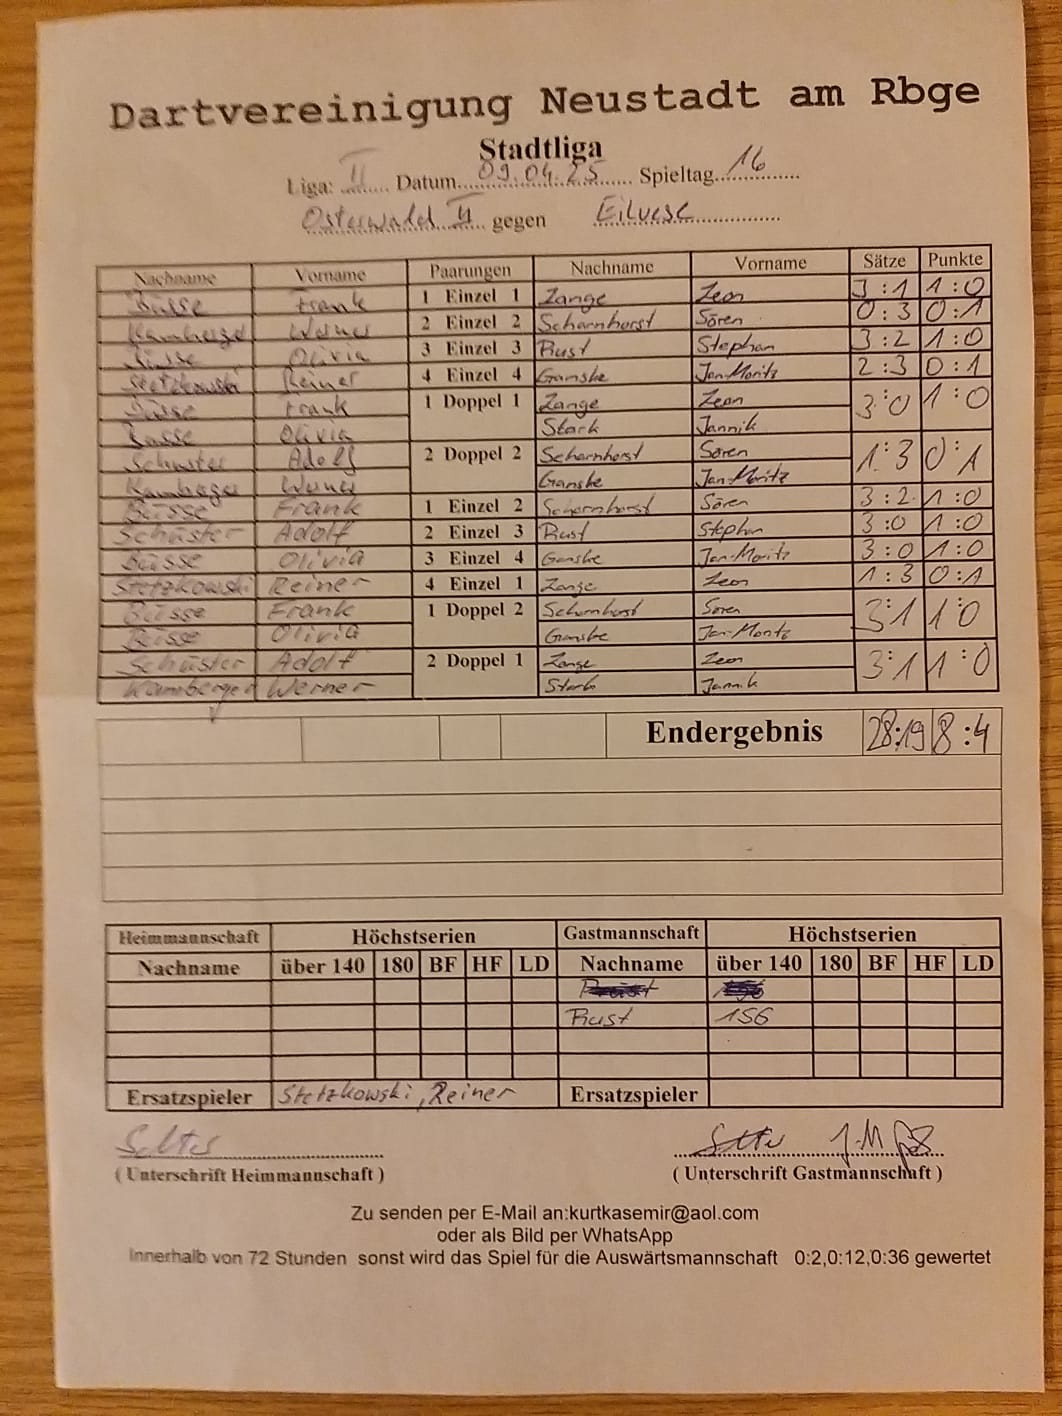 Dartvereinigung Neustadt am Rbge
Stadtliga
Liga: II Datum 09.04.25 Spieltag 16
Osterwald II gegen Eilvese
Nachname Vorname Paarungen Nachname Vorname Sätze Punkte
Büsse Frank 1 Einzel 1 Zange Leon 3:1 1:0
Kamberger Werner 2 Einzel 2 Scharnhorst Sören 0:3 0:1
Büsse Olivia 3 Einzel 3 Rust Stephan 3:2 1:0
Stetzkowski Reiner 4 Einzel 4 Ganske Jan-Moritz 2:3 0:1
Büsse Frank 1 Doppel 1 Zange Leon 3:0 1:0
Büsse Olivia Stark Jannik
Schuster Adolf 2 Doppel 2 Scharnhorst Sören 1:3 0:1
Kamberger Werner Ganske Jan-Moritz
Büsse Frank 1 Einzel 2 Scharnhorst Sören 3:2 1:0
Schüster Adolf 2 Einzel 3 Rust Stephan 3:0 1:0
Büsse Olivia 3 Einzel 4 Ganske Jan-Moritz 3:0 1:0
Stetzkowski Reiner 4 Einzel 1 Zange Leon 1:3 0:1
Büsse Frank 1 Doppel 2 Scharnhorst Sören 3:1 1:0
Büsse Olivia Ganske Jan-Moritz
Schüster Adolf 2 Doppel 1 Zange Leon 3:1 1:0
Kamberger Werner Stark Jannik
Endergebnis 28:19 8:4
Heimmannschaft Höchstserien Gastmannschaft Höchstserien
Nachname über 140 180 BF HF LD Nachname über 140 180 BF HF LD
Rust 156
Ersatzspieler Stetzkowski, Reiner Ersatzspieler
( Unterschrift Heimmannschaft ) ( Unterschrift Gastmannschaft )
Zu senden per E-Mail an:kurtkasemir@aol.com
oder als Bild per WhatsApp
Innerhalb von 72 Stunden sonst wird das Spiel für die Auswärtsmannschaft 0:2,0:12,0:36 gewertet